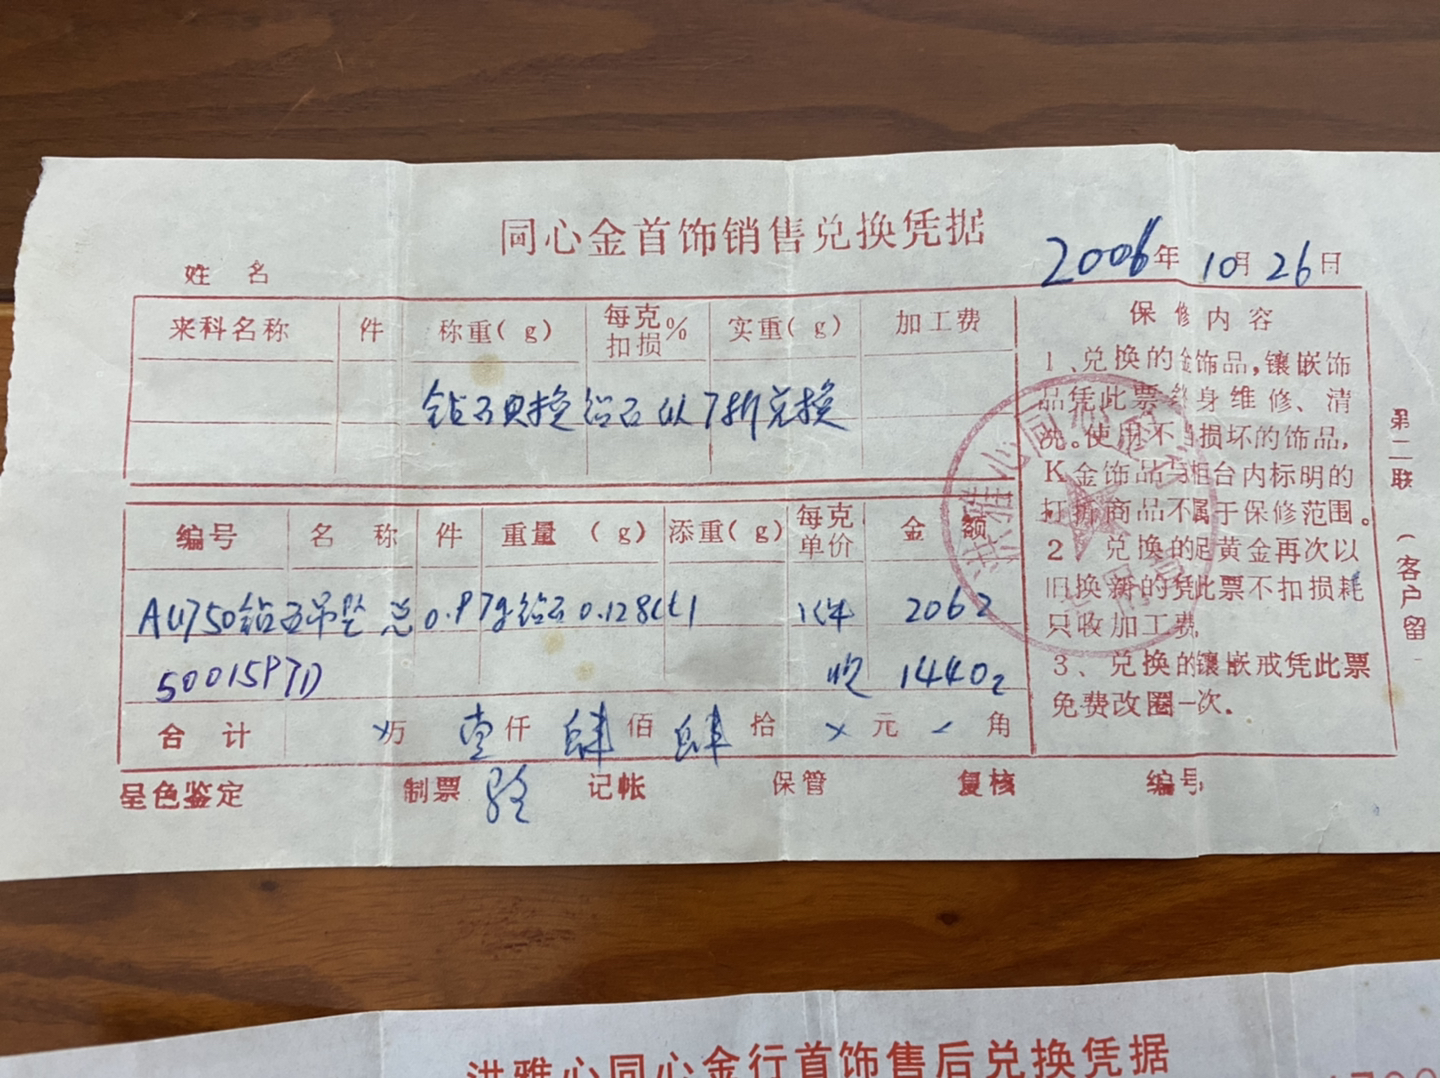 同心金首饰销售兑换凭据
2006年 10月 26日
姓 名
来料名称 件 称重(g) 每克扣损% 实重(g) 加工费
钻石只换钻石以7折兑换
编号 名 称 件 重量 (g) 添重(g) 每克单价 金 额
AU750钻石吊坠 总0.97g钻石0.128ct 1 1件 2062
500159 收 1440
合 计 万 壹仟 肆佰 肆拾 元 角
呈色鉴定 制票 记帐 保管 复核 编号
保修内容
1、兑换的金饰品,镶嵌饰
品凭此票终身维修、清
洗。使用不当损坏的饰品,
K金饰品与柜台内标明的
打折商品不属于保修范围。
2 兑换的足黄金再次以
旧换新的凭此票不扣损耗
只收加工费
3、兑换的镶嵌戒凭此票
免费改圈一次.
第二联(客户留
洪雅心同心
洪雅心同心金行首饰售后兑换凭据